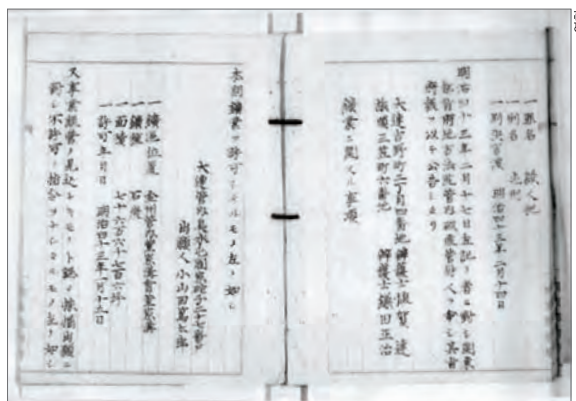 一 罪名 殺人犯
一 刑名 死刑
一 判決言渡 明治四十三年二月十四日
明治四十三年二月十七日左記ノ者ニ對シ關東
都督府地方法院管内破產管財人ヲ命シ其旨
ヲ以テ公告シタリ
大連吉野町二丁目四番地 辯護士
旅順三笠町六番地 辯護士鎌田正治
鑛業ニ關スル事項
本期鑛業ヲ許可シタルモノ左ノ如シ
大連管内 二十七番戸
人小山田篤太郎
一 鑛區位置 金州管内
一 鑛種 石
一 面積 七十六万六千七百六坪
一 許可年月日 明治四十三年一月十三日
又事業經營ノ見込ナキモノト認メ採掘出願ニ
對シ不許可ノ指令ヲナシタルモノ左ノ如シ